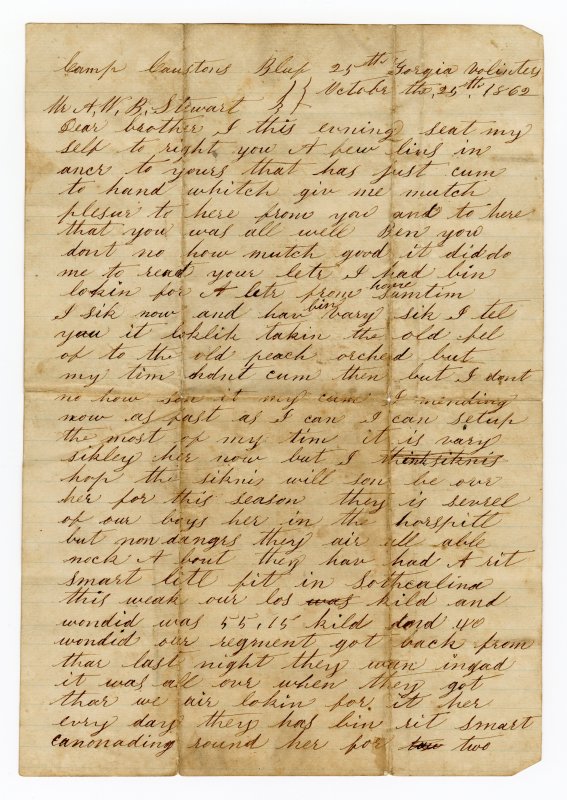 Camp Caustons Bluf 25th Gorgia Volinters
Octobre the, 25th. 1862
Mr A, W, B, Stewart
Dear brother I this evning seat my
self to right you A few lins in
ancr to yours that has just cum
to hand whitch giv me mutch
plesur to here from you and to here
that you was all well Ben you
dont no how mutch good it did do
me to read your letr I had bin
lokin for A letr from home sumtim
I sik now and hav bin vary sik I tel
you it loklik takin the old fel
of to the old peach orched but
my tim hadnt cum then but I dont
no how son it my cum I mending
now as fast as I can I can setup
the most of my tim it is vary
sikley her now but I think siknis
hop the siknis will son be ovr
her for this season they is sevrel
of our boys her in the horspitt
but non dangrs they air all able
nock A bout they hav had A rit
smart litl fit in Sothcalina
this weak our los was kild and
wondid was 55, 15 kild and 40
wondid our regment got back from
thar last night they wan ingad
it was all ovr when they got
thar we air lokin for it her
evry day they has bin rit smart
canonading round her for two